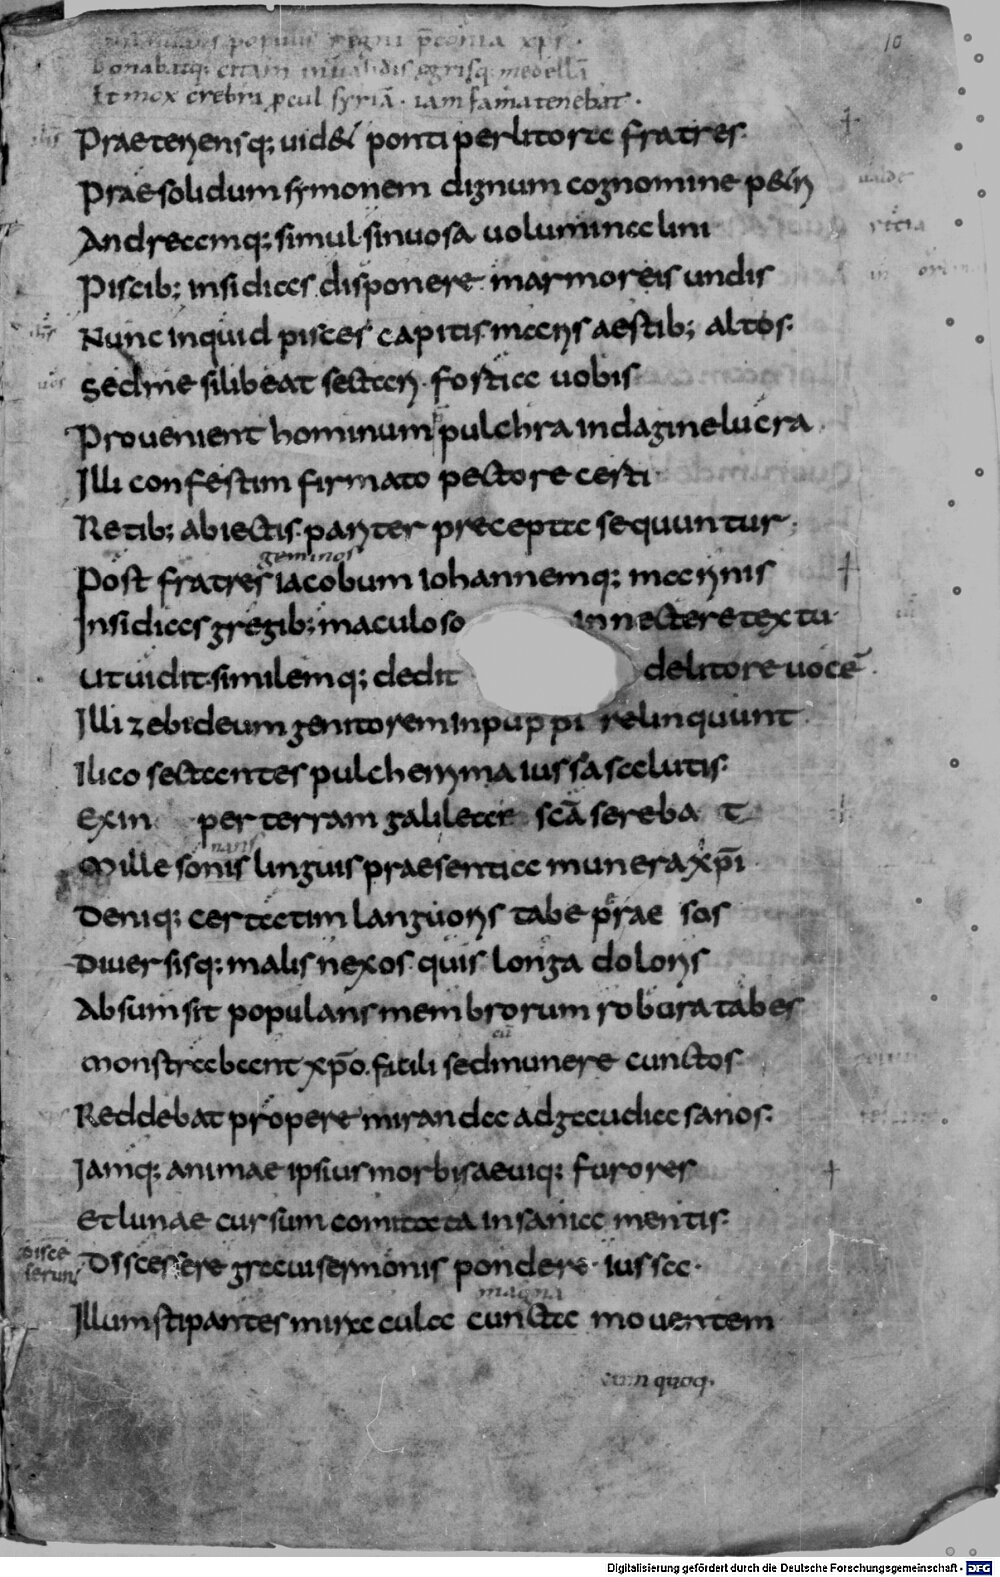 populus regni p̄conia xp̄i.
Donabatq; etiam inualidis egrisq; medellā
Et mox crebra p̄cul syriā. iam fama tenebat.
10
Praeteriensq; uidet ponti per litora fratres.
Prae solidum symonem dignum cognomine petri
Andreamq; simul. sinuosa uolumina lini
Piscib; insidias disponere marmoreis undis
Nunc inquid pisces capitis maris aestib; altos.
Sed me si libeat sectari. fortia uobis
Prouenient hominum pulchra indagine lucra.
Illi confestim firmato pectore certi.
Retib; abiectis. pariter precepta sequuntur.
geminos
Post fratres iacobum iohannemq; marinis
Insidias gregib; maculoso innectere textu.
Ut uidit. similemq; dedit de litore uocē.
Illi zebideum genitorem in puppi relinquunt
Ilico sectantes pulcherrima iussa salutis.
Exin per terram galileae scā sereba t
Mille sonis linguis praesentia munera xp̄i
Deniq; certatim languoris tabe prae sos
Diuersisq; malis nexos. quis longa doloris
Absumsit populans membrorum robura tabes
Monstrabant xp̄o. facili sed munere cunctos.
Reddebat propere miranda ad gaudia sanos.
Iamq; animae ipsius morbi saeuiq; furores
Et lunae cursum comitata insania mentis.
disce
serunt
Dsscessere graui sermonis pondere. iussa.
magna
Illum stipantes mira caula cuncta mouentem
cum quoq.
Digitalisierung gefördert durch die Deutsche Forschungsgemeinschaft - DFG